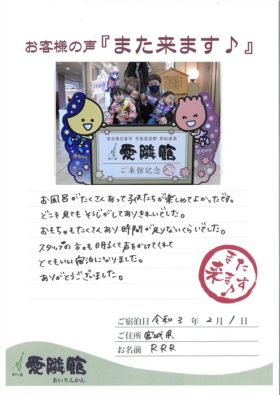 お客様の声『また来ます♪』
愛隣館
ご来館記念
お風呂がたくさんあって子供たちが楽しめてよかったです。
どこを見てもそうじがしてありきれいでした。
おもちゃもたくさんあり時間が足りないくらいでした。
スタッフの方も明るくて声をかけてくれて
とてもいい宿泊になりました。
ありがとうございました。
また
来ます♪
ご宿泊日 令和 3 年 2 月 1 日
ご住所 宮城県
お名前 RRR
愛隣館
あいりんかん